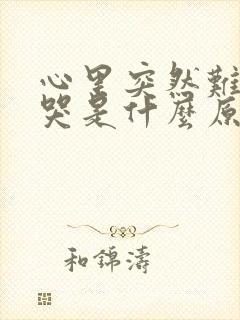 心里突然難
哭是什麼原
和錦濤